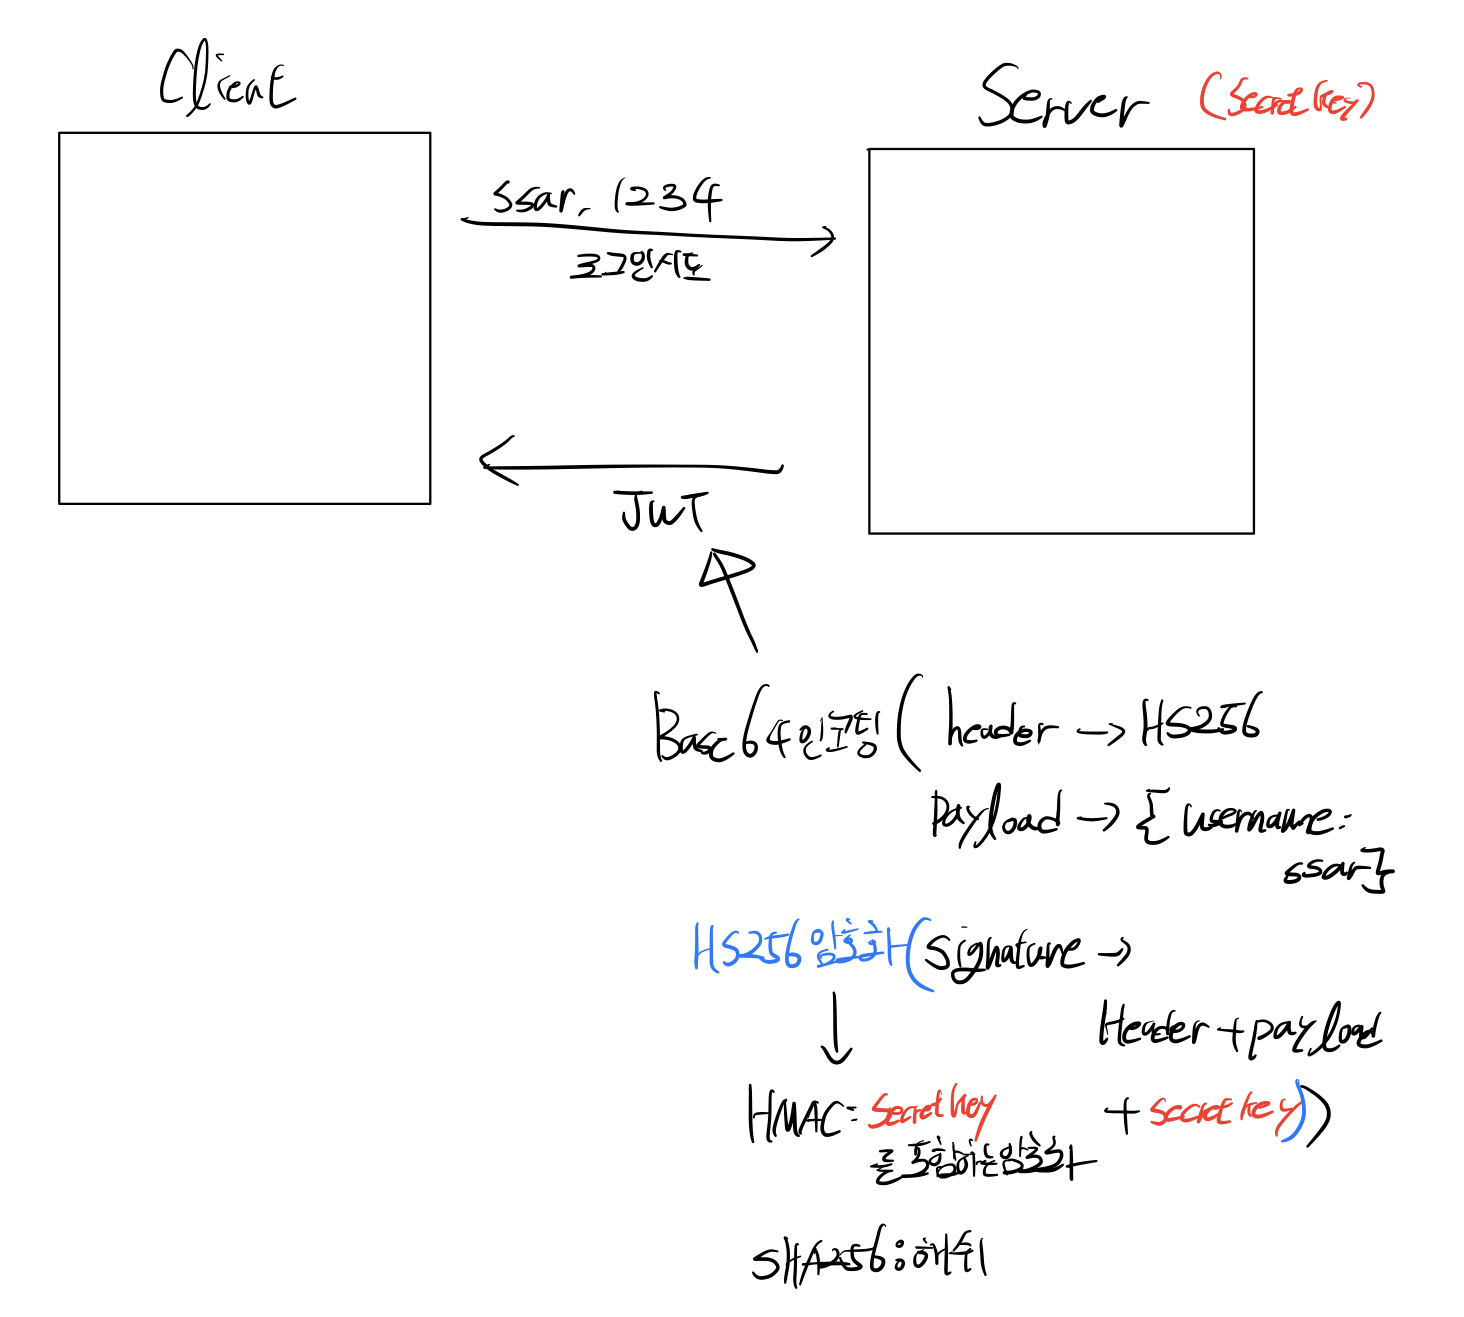 Client
Server (Secret key)
ssar, 1234
로그인시도
JWT
Base64인코딩(header → HS256
payload → {username:
ssar}
HS256암호화(signature →
Header+payload
HMAC: Secret key
+ secret key))
를 포함하는암호화
SHA256:해쉬